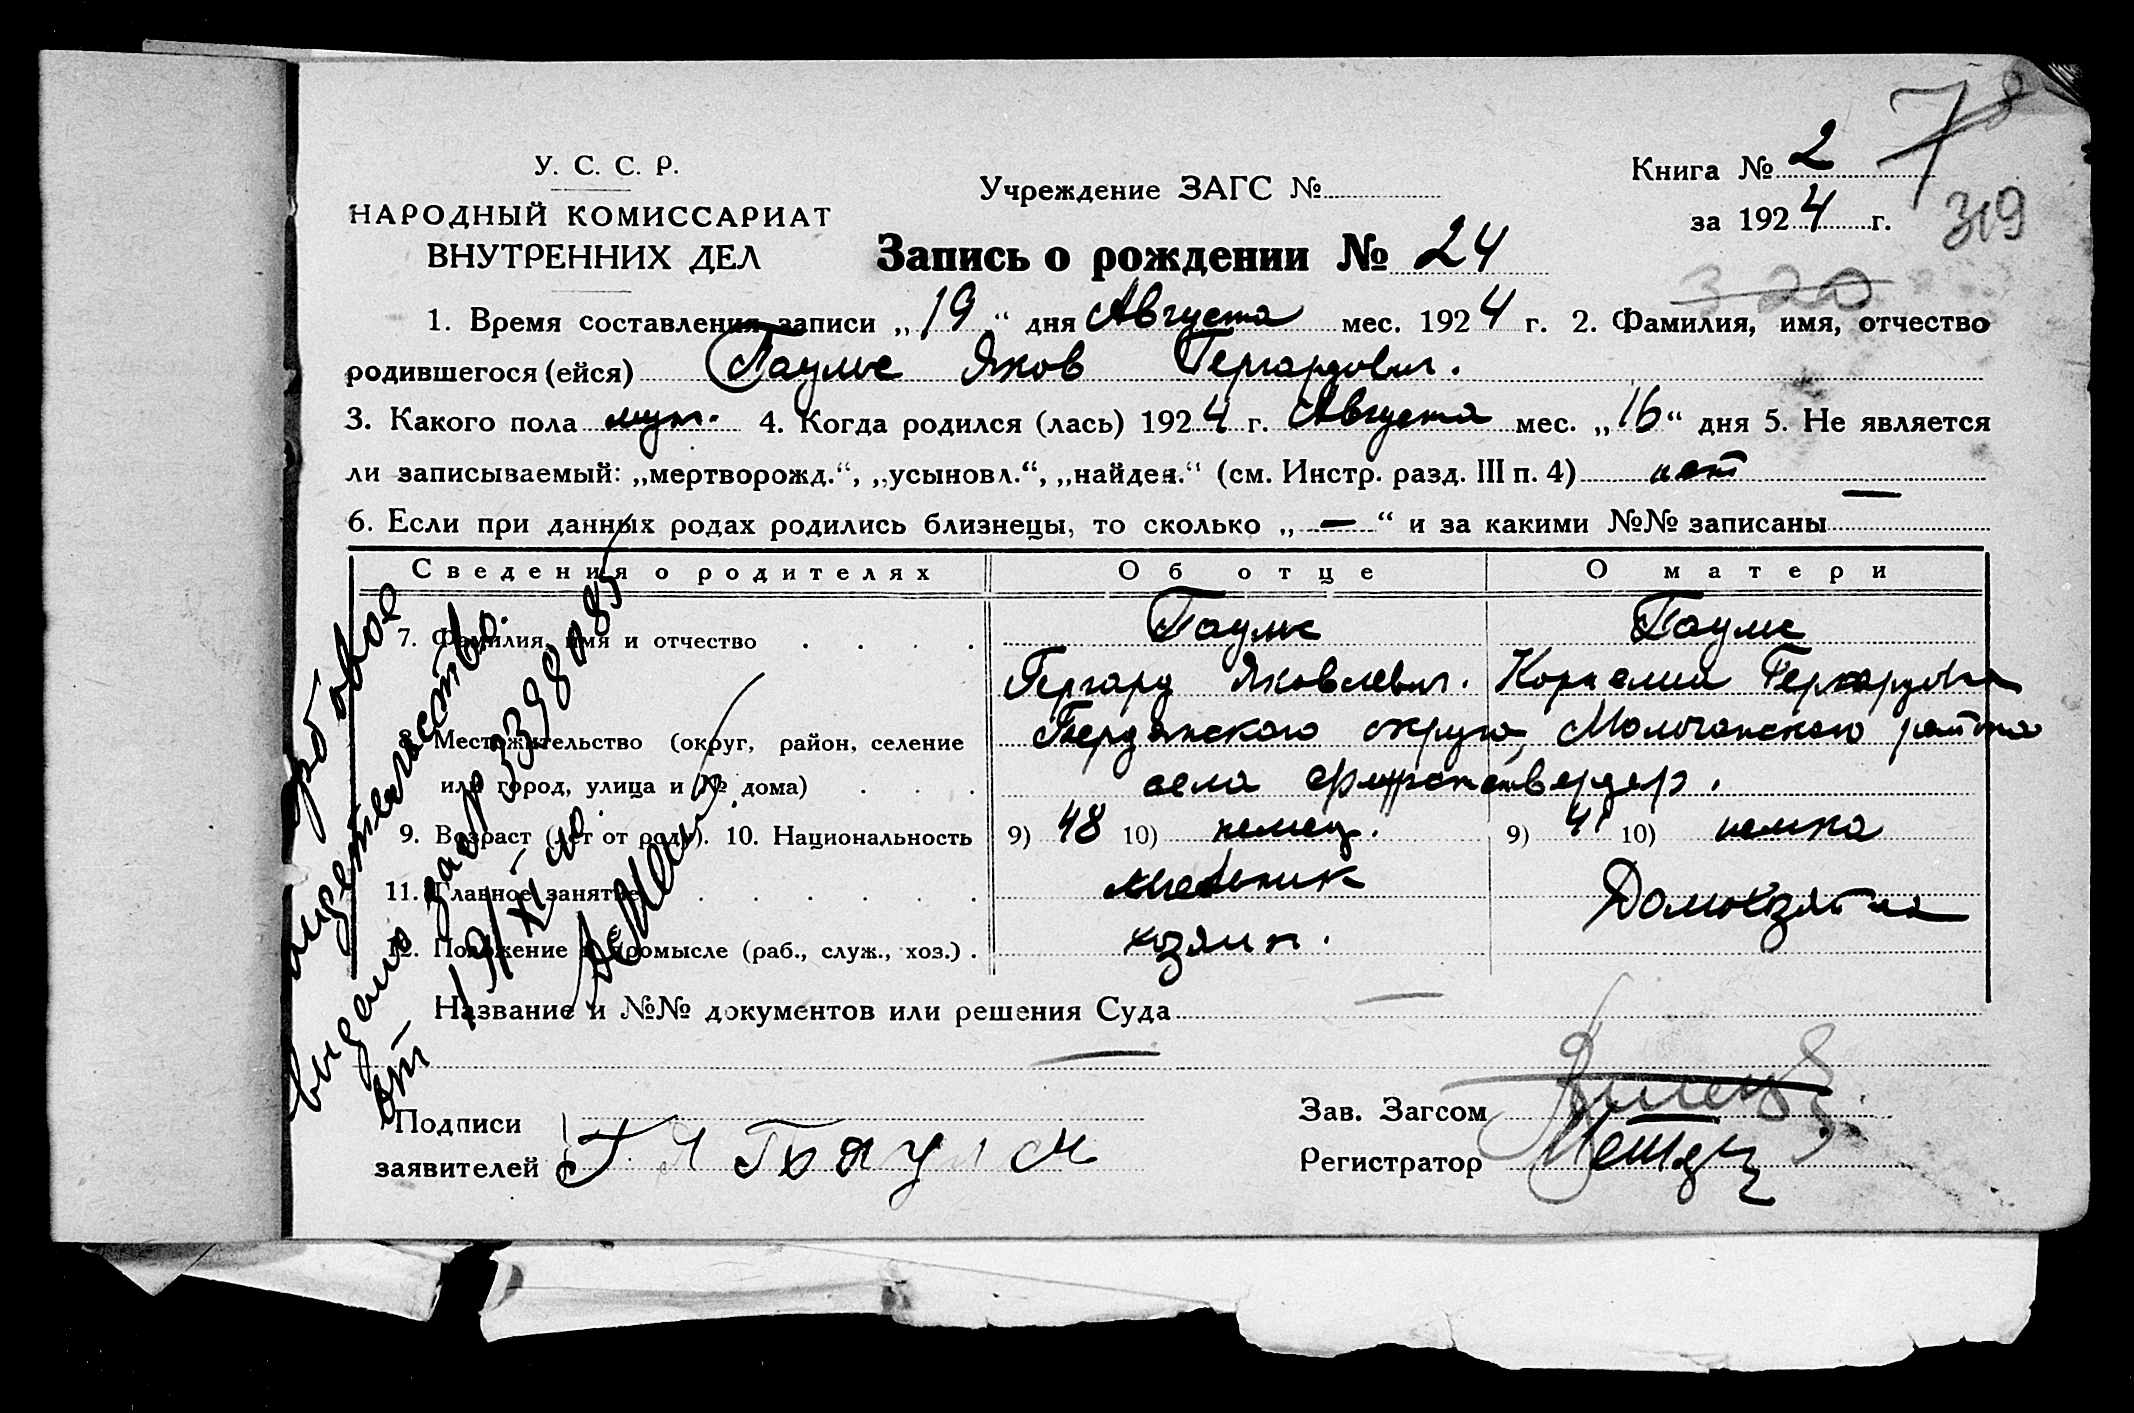 У. С. С. Р.
НАРОДНЫЙ КОМИССАРИАТ
ВНУТРЕННИХ ДЕЛ
Учреждение ЗАГС №
Книга № 2
за 1924 г.
78
319
320
Запись о рождении № 24
1. Время составления записи „19“ дня Августа мес. 1924 г. 2. Фамилия, имя, отчество
родившегося (ейся) Паульс Яков Гергардович.
3. Какого пола муж. 4. Когда родился (лась) 1924 г. Августа мес. „16“ дня 5. Не является
ли записываемый: „мертворожд.“, „усыновл.“, „найден.“ (см. Инстр. разд. III п. 4) нет
6. Если при данных родах родились близнецы, то сколько „—“ и за какими №№ записаны —
Сведения о родителях Об отце О матери
7. Фамилия, имя и отчество Паульс Паульс
Гергард Яковлевич. Корнелия Гергардовна
8. Местожительство (округ, район, селение Бердянского округа, Молочанского района
или город, улица и № дома) села
9. Возраст (лет от роду). 10. Национальность 9) 48 10) немец. 9) 41 10) немка
11. Главное занятие мельник Домохозяйка
12. Положение в промысле (раб., служ., хоз.) хозяин.
Название и №№ документов или решения Суда —
—
Подписи
заявителей Г Я
Зав. Загсом
Регистратор
свидетельство.
выдано
от